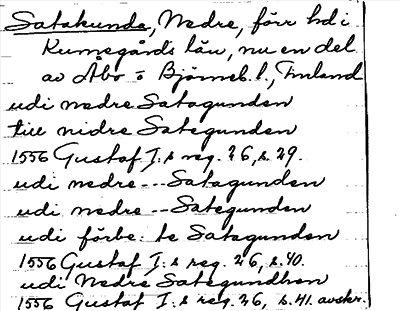 Satakunda, Nedre, förr hd i
Kumogårds län, nu en del
av Åbo o Björneb. l., Finland
udi nedre Satagunden
till nidre Sategunden
1556 Gustaf I:s reg. 26, s. 29.
udi nedre --- Satagunden
udi nedre -- Sategunden
udi förbe:te Satagunden
1556 Gustaf I:s reg. 26, s. 40.
udi Nedre Sategundhen
1556 Gustaf I:s reg. 26, s. 41. avskr.